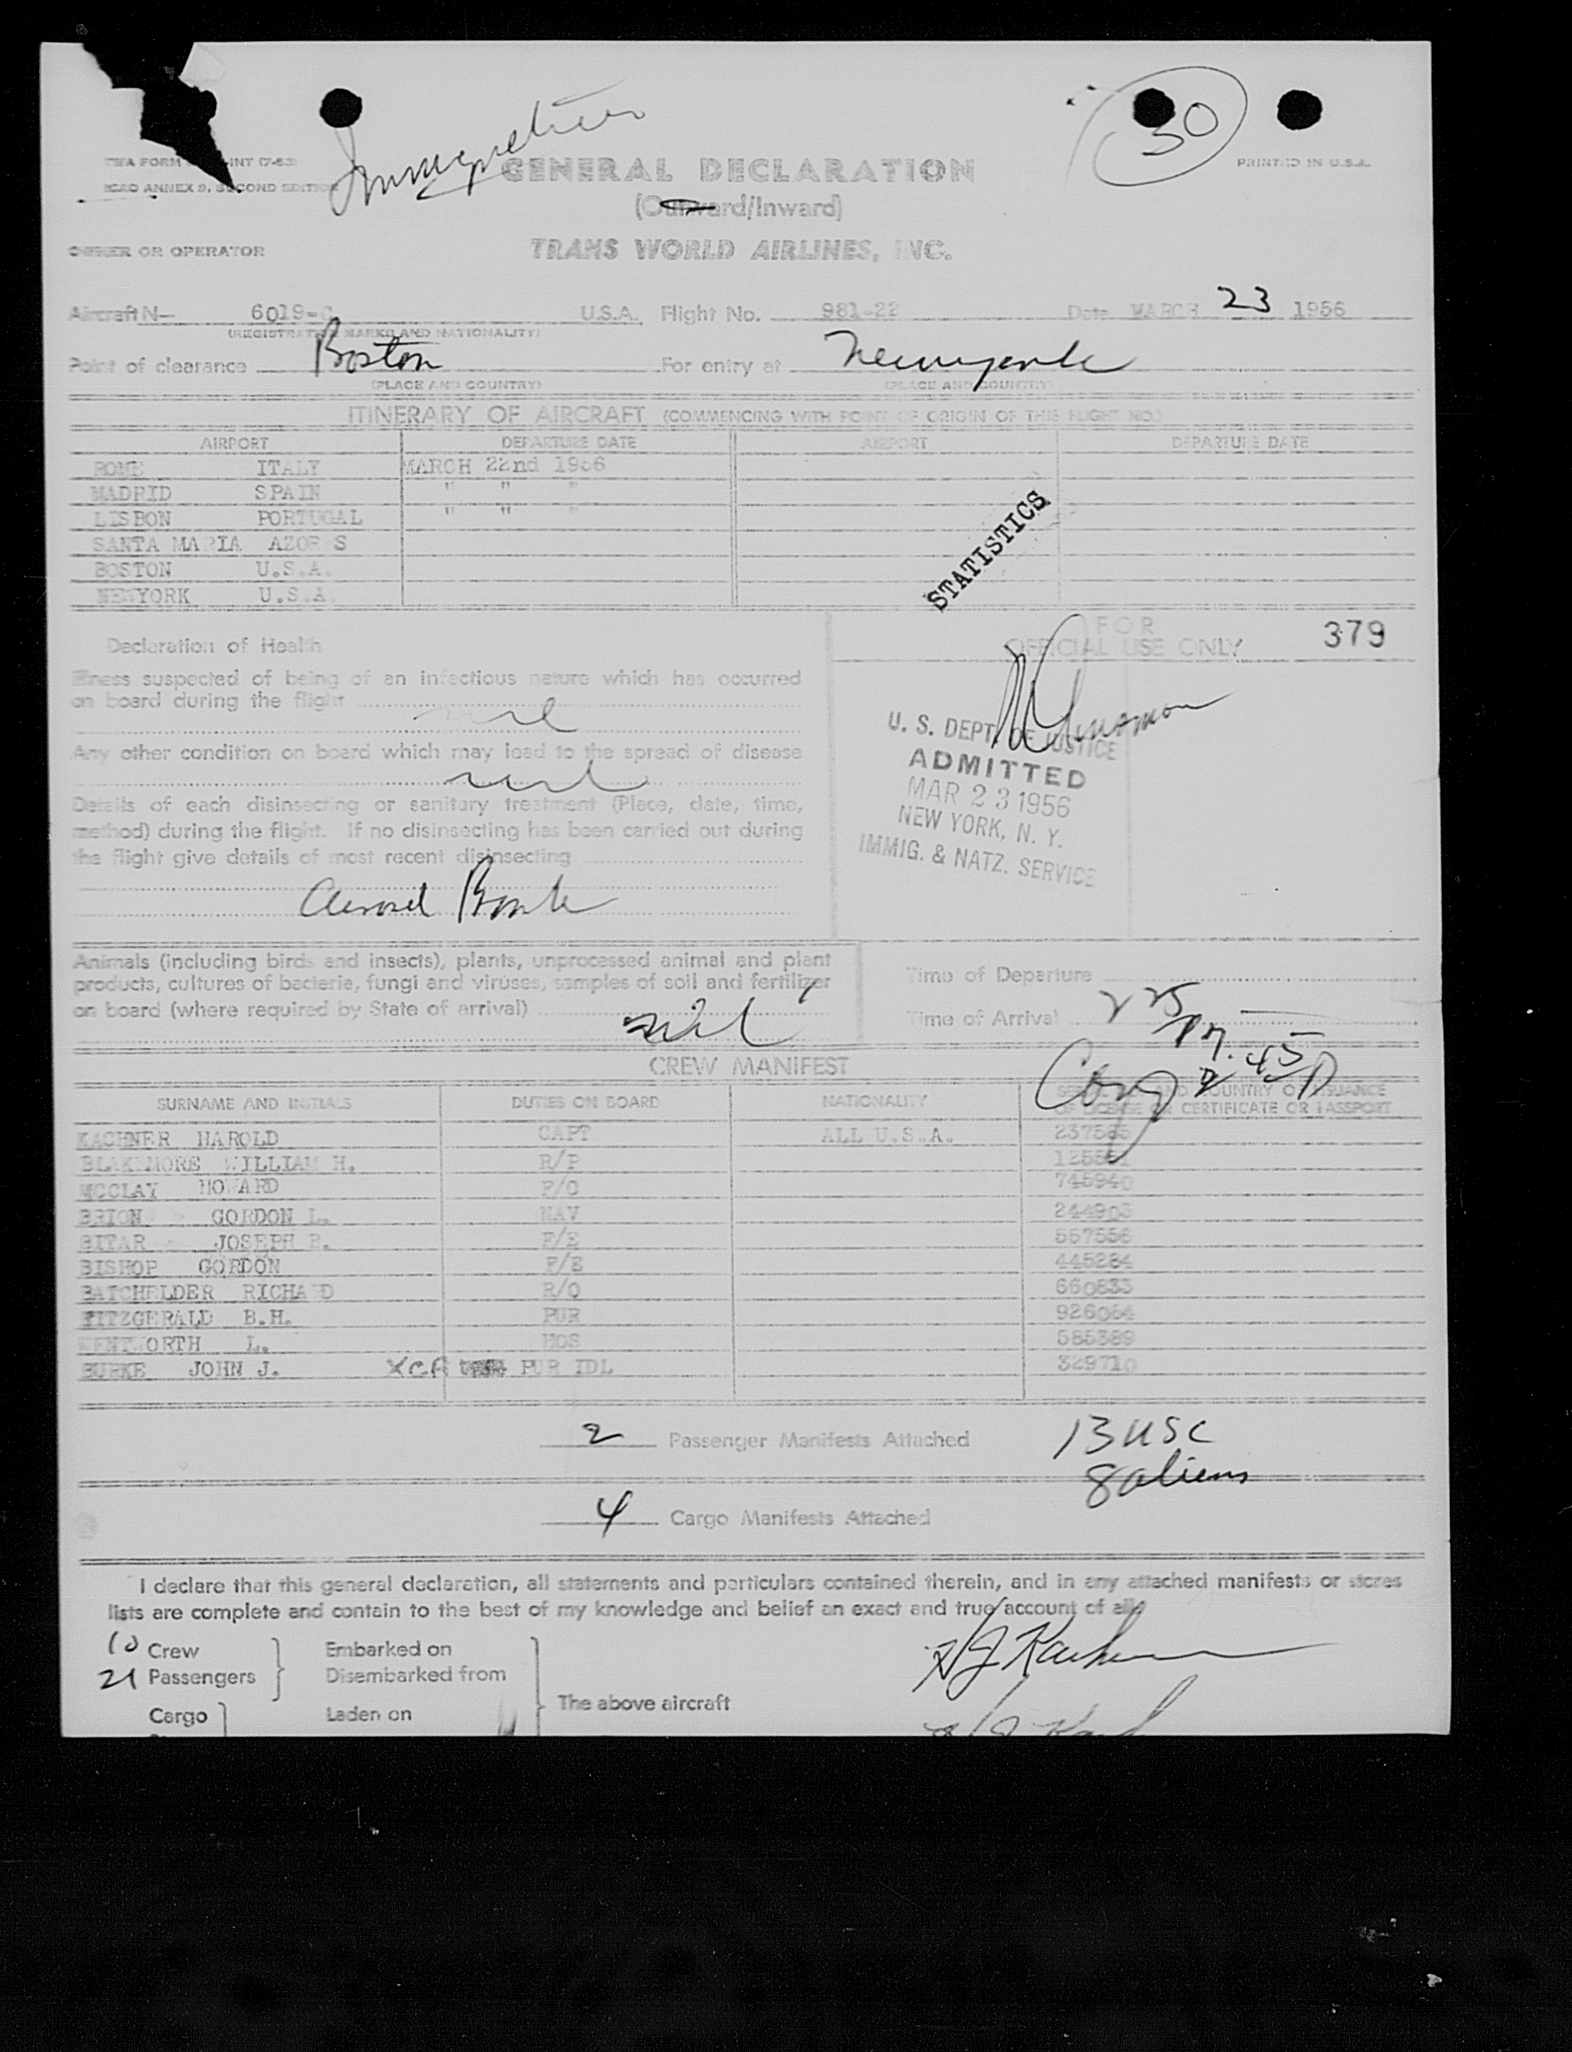 Immigration
30
PRINTED IN U.S.A.
ICAO ANNEX 9, SECOND EDITION
GENERAL DECLARATION
(Outward/Inward)
OWNER OR OPERATOR TRANS WORLD AIRLINES, INC.
Aircraft N— 6019-C U.S.A. Flight No. 981-22 Date MARCH 23 1956
(REGISTRATION MARKS AND NATIONALITY)
Point of clearance Boston For entry at New York
(PLACE AND COUNTRY) (PLACE AND COUNTRY)
ITINERARY OF AIRCRAFT (COMMENCING WITH POINT OF ORIGIN OF THIS FLIGHT NO.)
AIRPORT DEPARTURE DATE AIRPORT DEPARTURE DATE
ROME ITALY MARCH 22nd 1956
MADRID SPAIN " " "
LISBON PORTUGAL " " "
SANTA MARIA AZORES
BOSTON U.S.A.
NEWYORK U.S.A.
STATISTICS
FOR
OFFICIAL USE ONLY 379
Declaration of Health
Illness suspected of being of an infectious nature which has occurred
on board during the flight
nil
Any other condition on board which may lead to the spread of disease
nil
Details of each disinsecting or sanitary treatment (Place, date, time,
method) during the flight. If no disinsecting has been carried out during
the flight give details of most recent disinsecting
Aerosol Bomb
U. S. DEPT. OF JUSTICE
ADMITTED
MAR 23 1956
NEW YORK, N. Y.
IMMIG. & NATZ. SERVICE
Animals (including birds and insects), plants, unprocessed animal and plant
products, cultures of bacteria, fungi and viruses, samples of soil and fertilizer
on board (where required by State of arrival)
nil
Time of Departure
Time of Arrival 225
PM.
2 45 P
CREW MANIFEST
SURNAME AND INITIALS DUTIES ON BOARD NATIONALITY SERIAL NO. AND COUNTRY OF ISSUANCE
OF LICENSE OR CERTIFICATE OR PASSPORT
KACHNER HAROLD CAPT ALL U.S.A.
BLAKEMORE WILLIAM H. R/P
MCCLAY HOWARD F/O 745940
BRION GORDON L. NAV 244903
BITAR JOSEPH F/E 557556
BISHOP GORDON F/E 445284
BATCHELDER RICHARD R/O 660833
FITZGERALD B.H. PUR 926064
WENTWORTH L. HOS 585389
BURKE JOHN J. XCR PUR IDL 329710
2 Passenger Manifests Attached 13 USC
8 aliens
4 Cargo Manifests Attached
I declare that this general declaration, all statements and particulars contained therein, and in any attached manifests or stores
lists are complete and contain to the best of my knowledge and belief an exact and true account of all
10 Crew Embarked on
21 Passengers Disembarked from
The above aircraft
Cargo Laden on